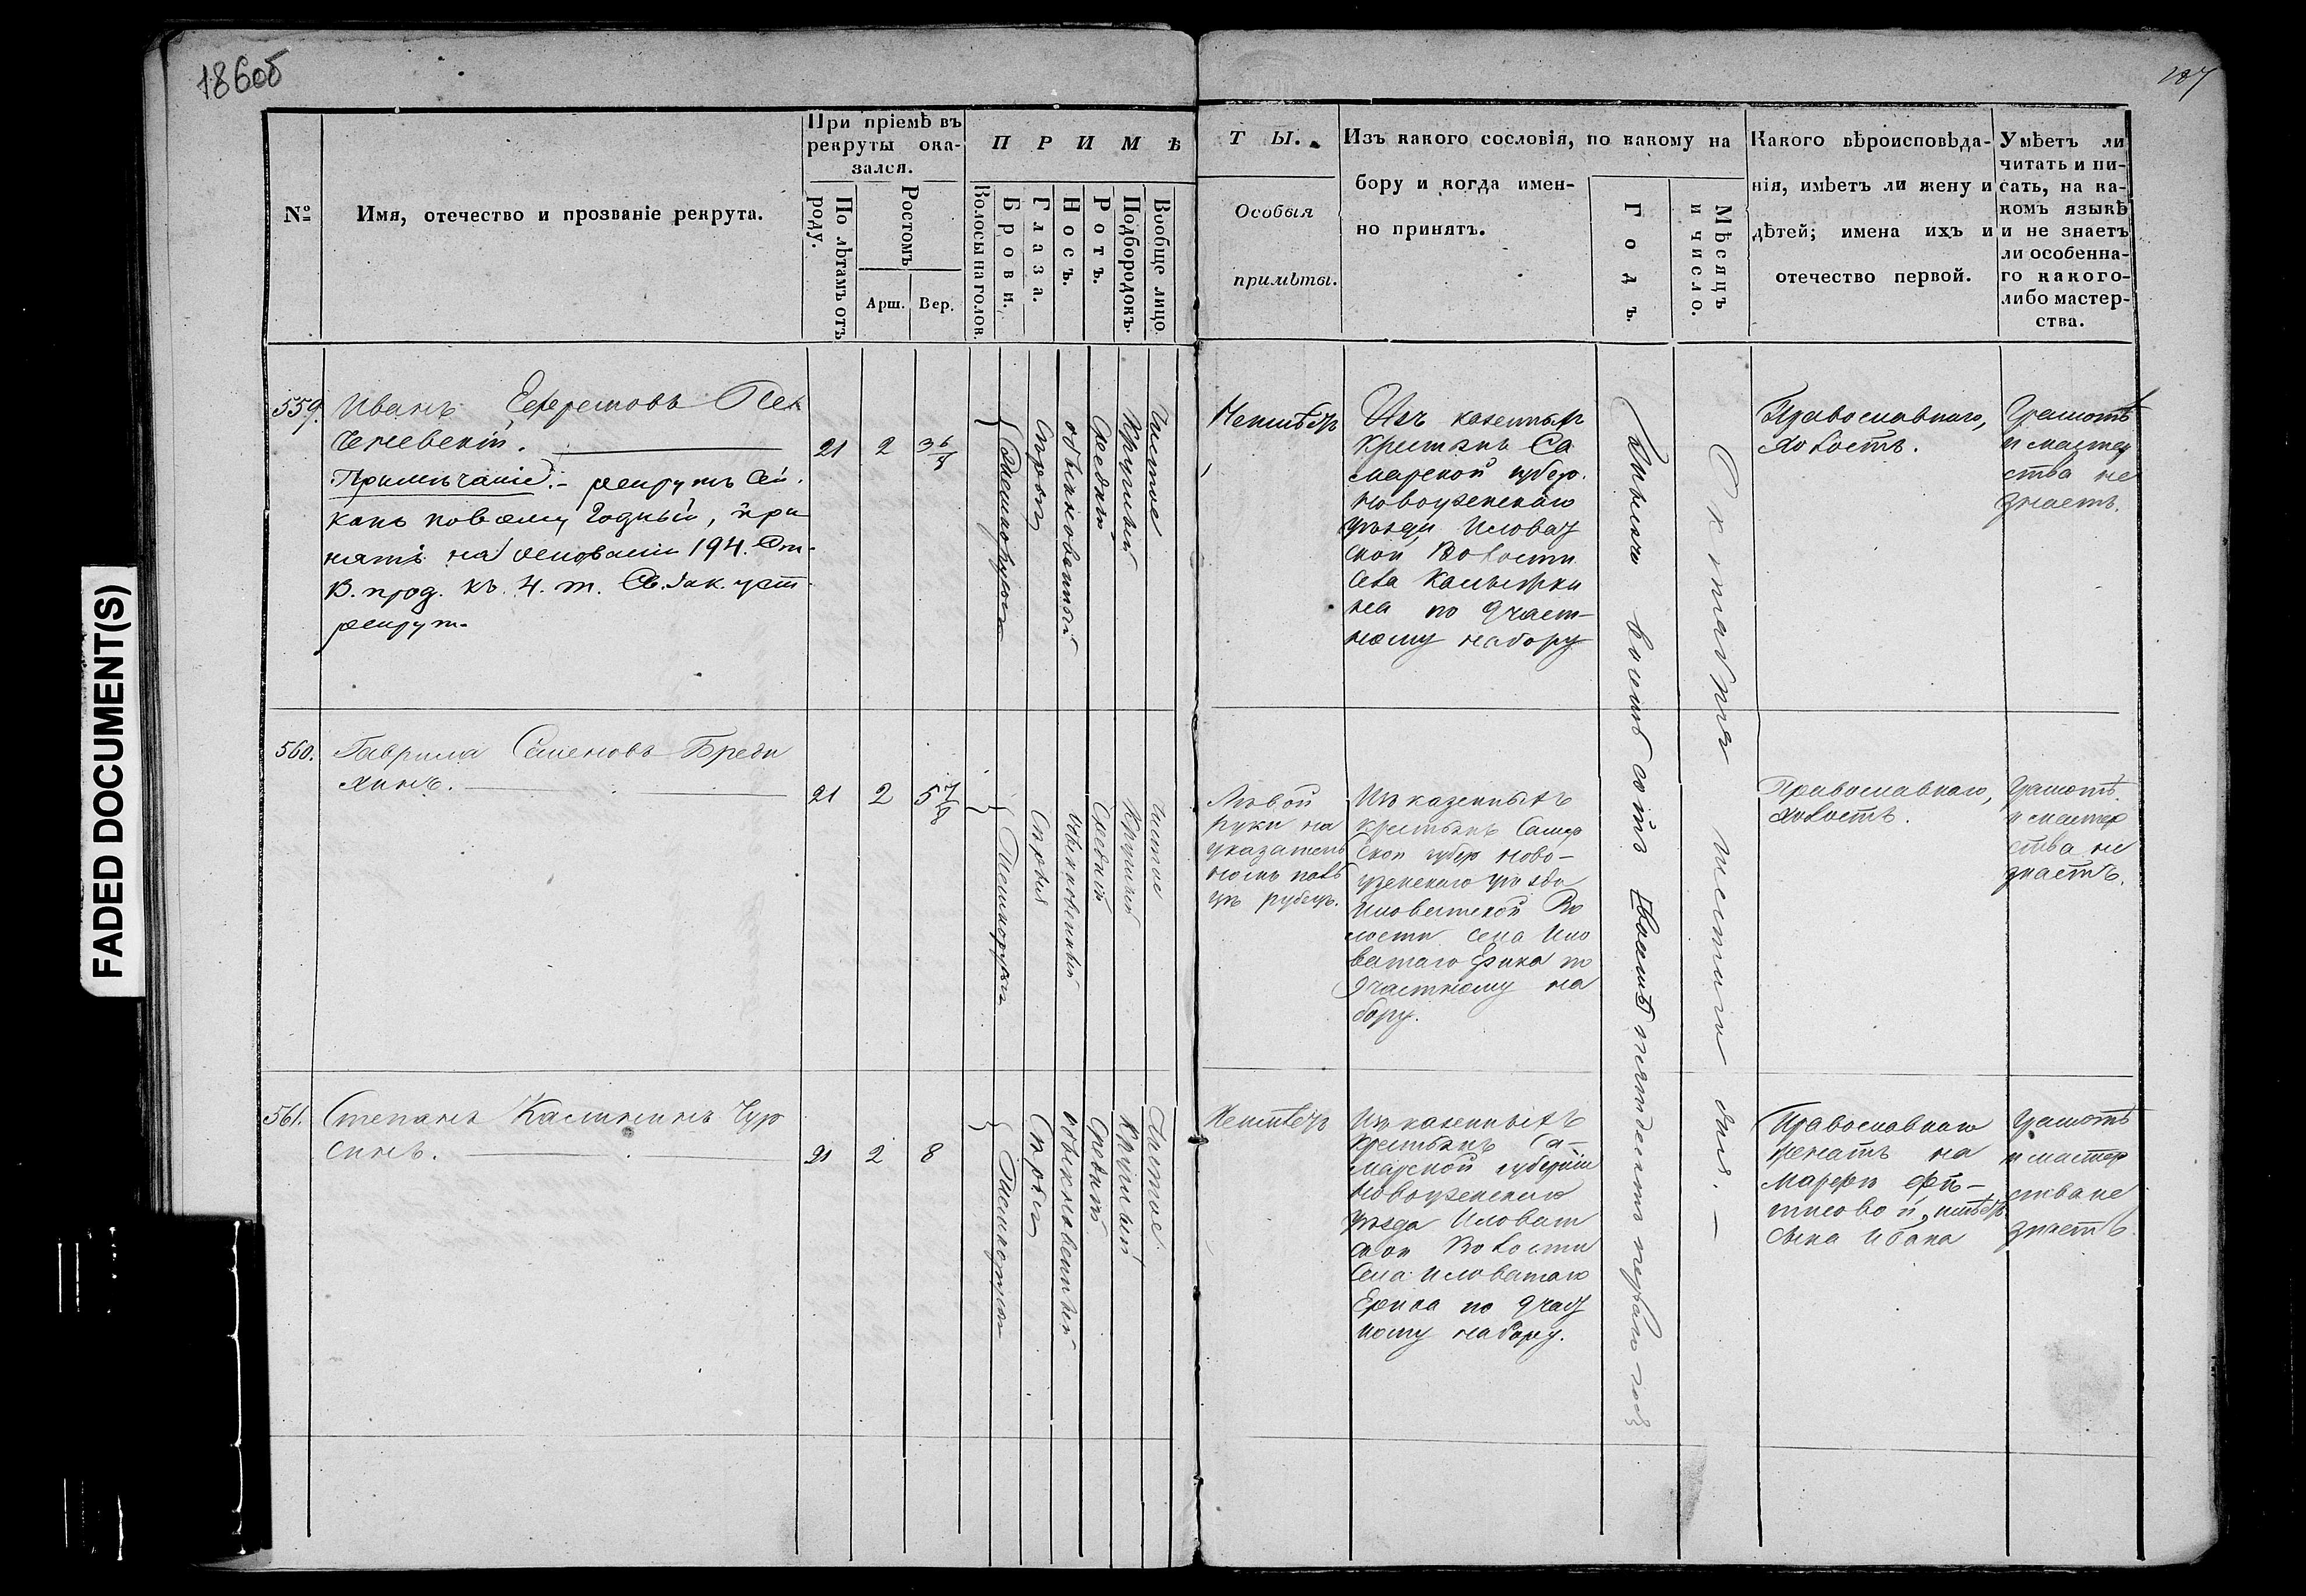 186об
187
FADED DOCUMENT(S)
№
Имя, отечество и прозваніе рекрута.
При пріемѣ въ
рекруты ока-
зался.
По лѣтамъ отъ
роду.
Ростомъ
Арш.
Вер.
П Р И М Ѣ
Волосы на голов.
Брови.
Глаза.
Носъ.
Ротъ.
Подбородокъ.
Вообще лицо.
Т Ы.
Особыя
примѣты.
Изъ какого сословія, по какому на
бору и когда имен-
но принятъ.
Годъ.
Мѣсяцъ
и число.
Какого вѣроисповѣда-
нія, имѣетъ ли жену и
дѣтей; имена ихъ и
отечество первой.
Умѣетъ ли
читать и пи-
сать, на ка-
комъ языкѣ
и не знаетъ
ли особенна-
го какого-
либо мастер-
ства.
559.
Иванъ Ефремовъ
Примѣчаніе:- рекрутъ сей,
какъ повсему годный, при
нятъ на основаніи 194. Ст.
В. прод. къ. 4. т. Св. Зак. уст
рекрут.
21
2
3 6/8
Темнорусыя
Сѣрыя
обыкновенный
Средній
Круглый
Чистое
Неимѣетъ
Изъ казенныхъ
Крестьянъ Са
марской губер.
Новоузенскаго
уѣзда Иловат
ской Волости
Села
по 9 част-
ному набору
Тысяча восемьсотъ пятьдесятъ перваго года
Октября шестаго дня. —
Православнаго,
холостъ.
Грамотѣ
и мастер
ства не
знаетъ.
560.
Гаврила Семеновъ Бреди
хинъ.
21
2
5 7/8
Темнорусыя
Сѣрыя
обыкновенный
Средній
Круглый
Чистое
Лѣвой
руки на
указатель
номъ паль
цѣ рубецъ.
Изъ казенныхъ
крестьянъ Самар
ской губер Ново-
узенскаго уѣзда
Иловатской Во
лости села Ило
ватаго Ерика по
9 частному на
бору.
Православнаго,
холостъ.
Грамотѣ
и мастер
ства не
знаетъ.
561.
Степанъ Калининъ Чур
синъ.
21
2
8
Темнорусыя
Сѣрыя
обыкновенный
Средній
Круглый
Чистое.
Неимѣетъ
Изъ казенныхъ
Крестьянъ Са-
марской губерніи
Новоузенскаго
уѣзда Иловат
ской Волости
Села Иловатаго
Ерика по 9 част
ному набору.
Православнаго
женатъ на
Марфѣ
имѣетъ
сына Ивана
Грамотѣ
и мастер
ства не
знаетъ.